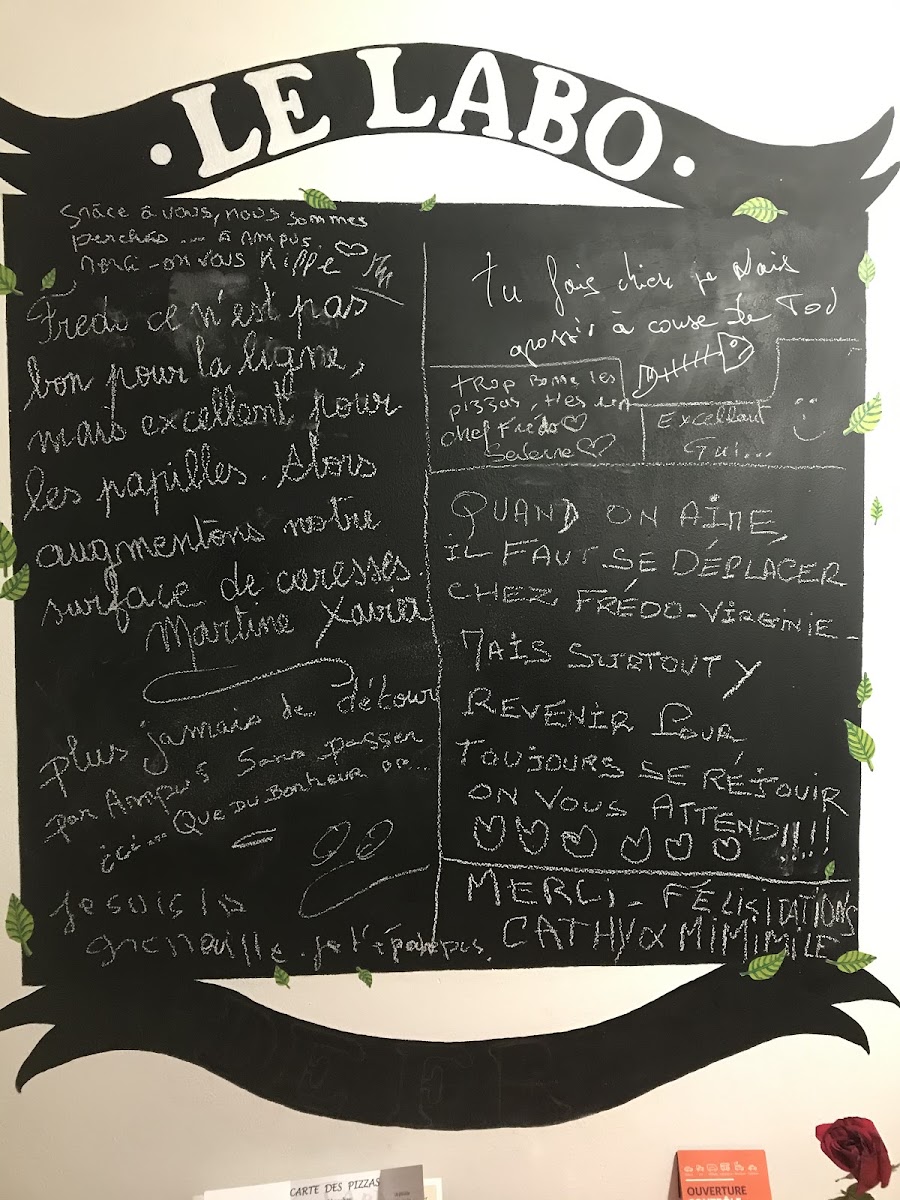 · LE LABO ·
Grâce à vous, nous sommes
perchés ... à Ampus
on vous Kiffe
Fredo ce n'est pas
bon pour la ligne,
mais excellent pour
les papilles. Alors
augmentons notre
surface de caresses
Martine Xavier
plus jamais de détour
par Ampus sans passer
ici... Que du Bonheur
Je suis la
grenouille. je t'
Tu fais chier je vais
grossir à cause de Toi
trop bonne les
pizzas, t'es un
chef Frédo
Excellent
Gui...
QUAND ON AIME,
IL FAUT SE DÉPLACER
CHEZ FRÉDO-VIRGINIE -
MAIS SURTOUT Y
REVENIR POUR
TOUJOURS SE RÉJOUIR
ON VOUS ATTEND!!!!
MERCI - FÉLICITATIONS
CATHY & MIMIMILE
CARTE DES PIZZAS
OUVERTURE